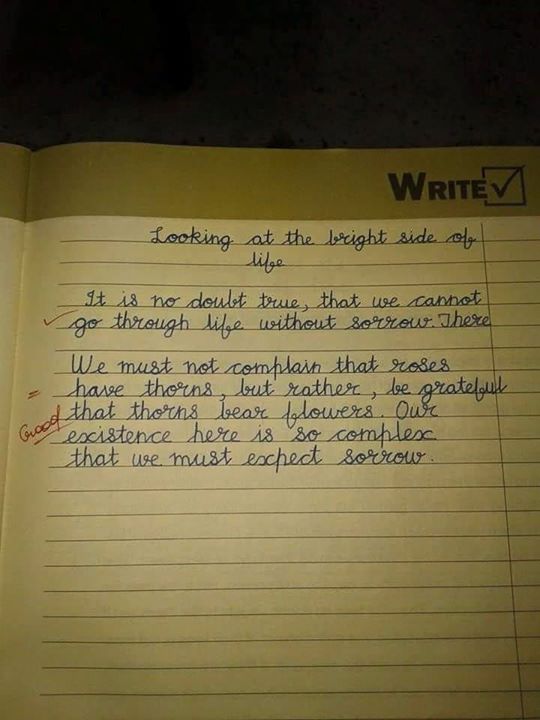 WRITE
Looking at the bright side of
life
It is no doubt true, that we cannot
go through life without sorrow. There
We must not complain that roses
have thorns, but rather, be grateful
Good that thorns bear flowers. Our
existence here is so complex
that we must expect sorrow.